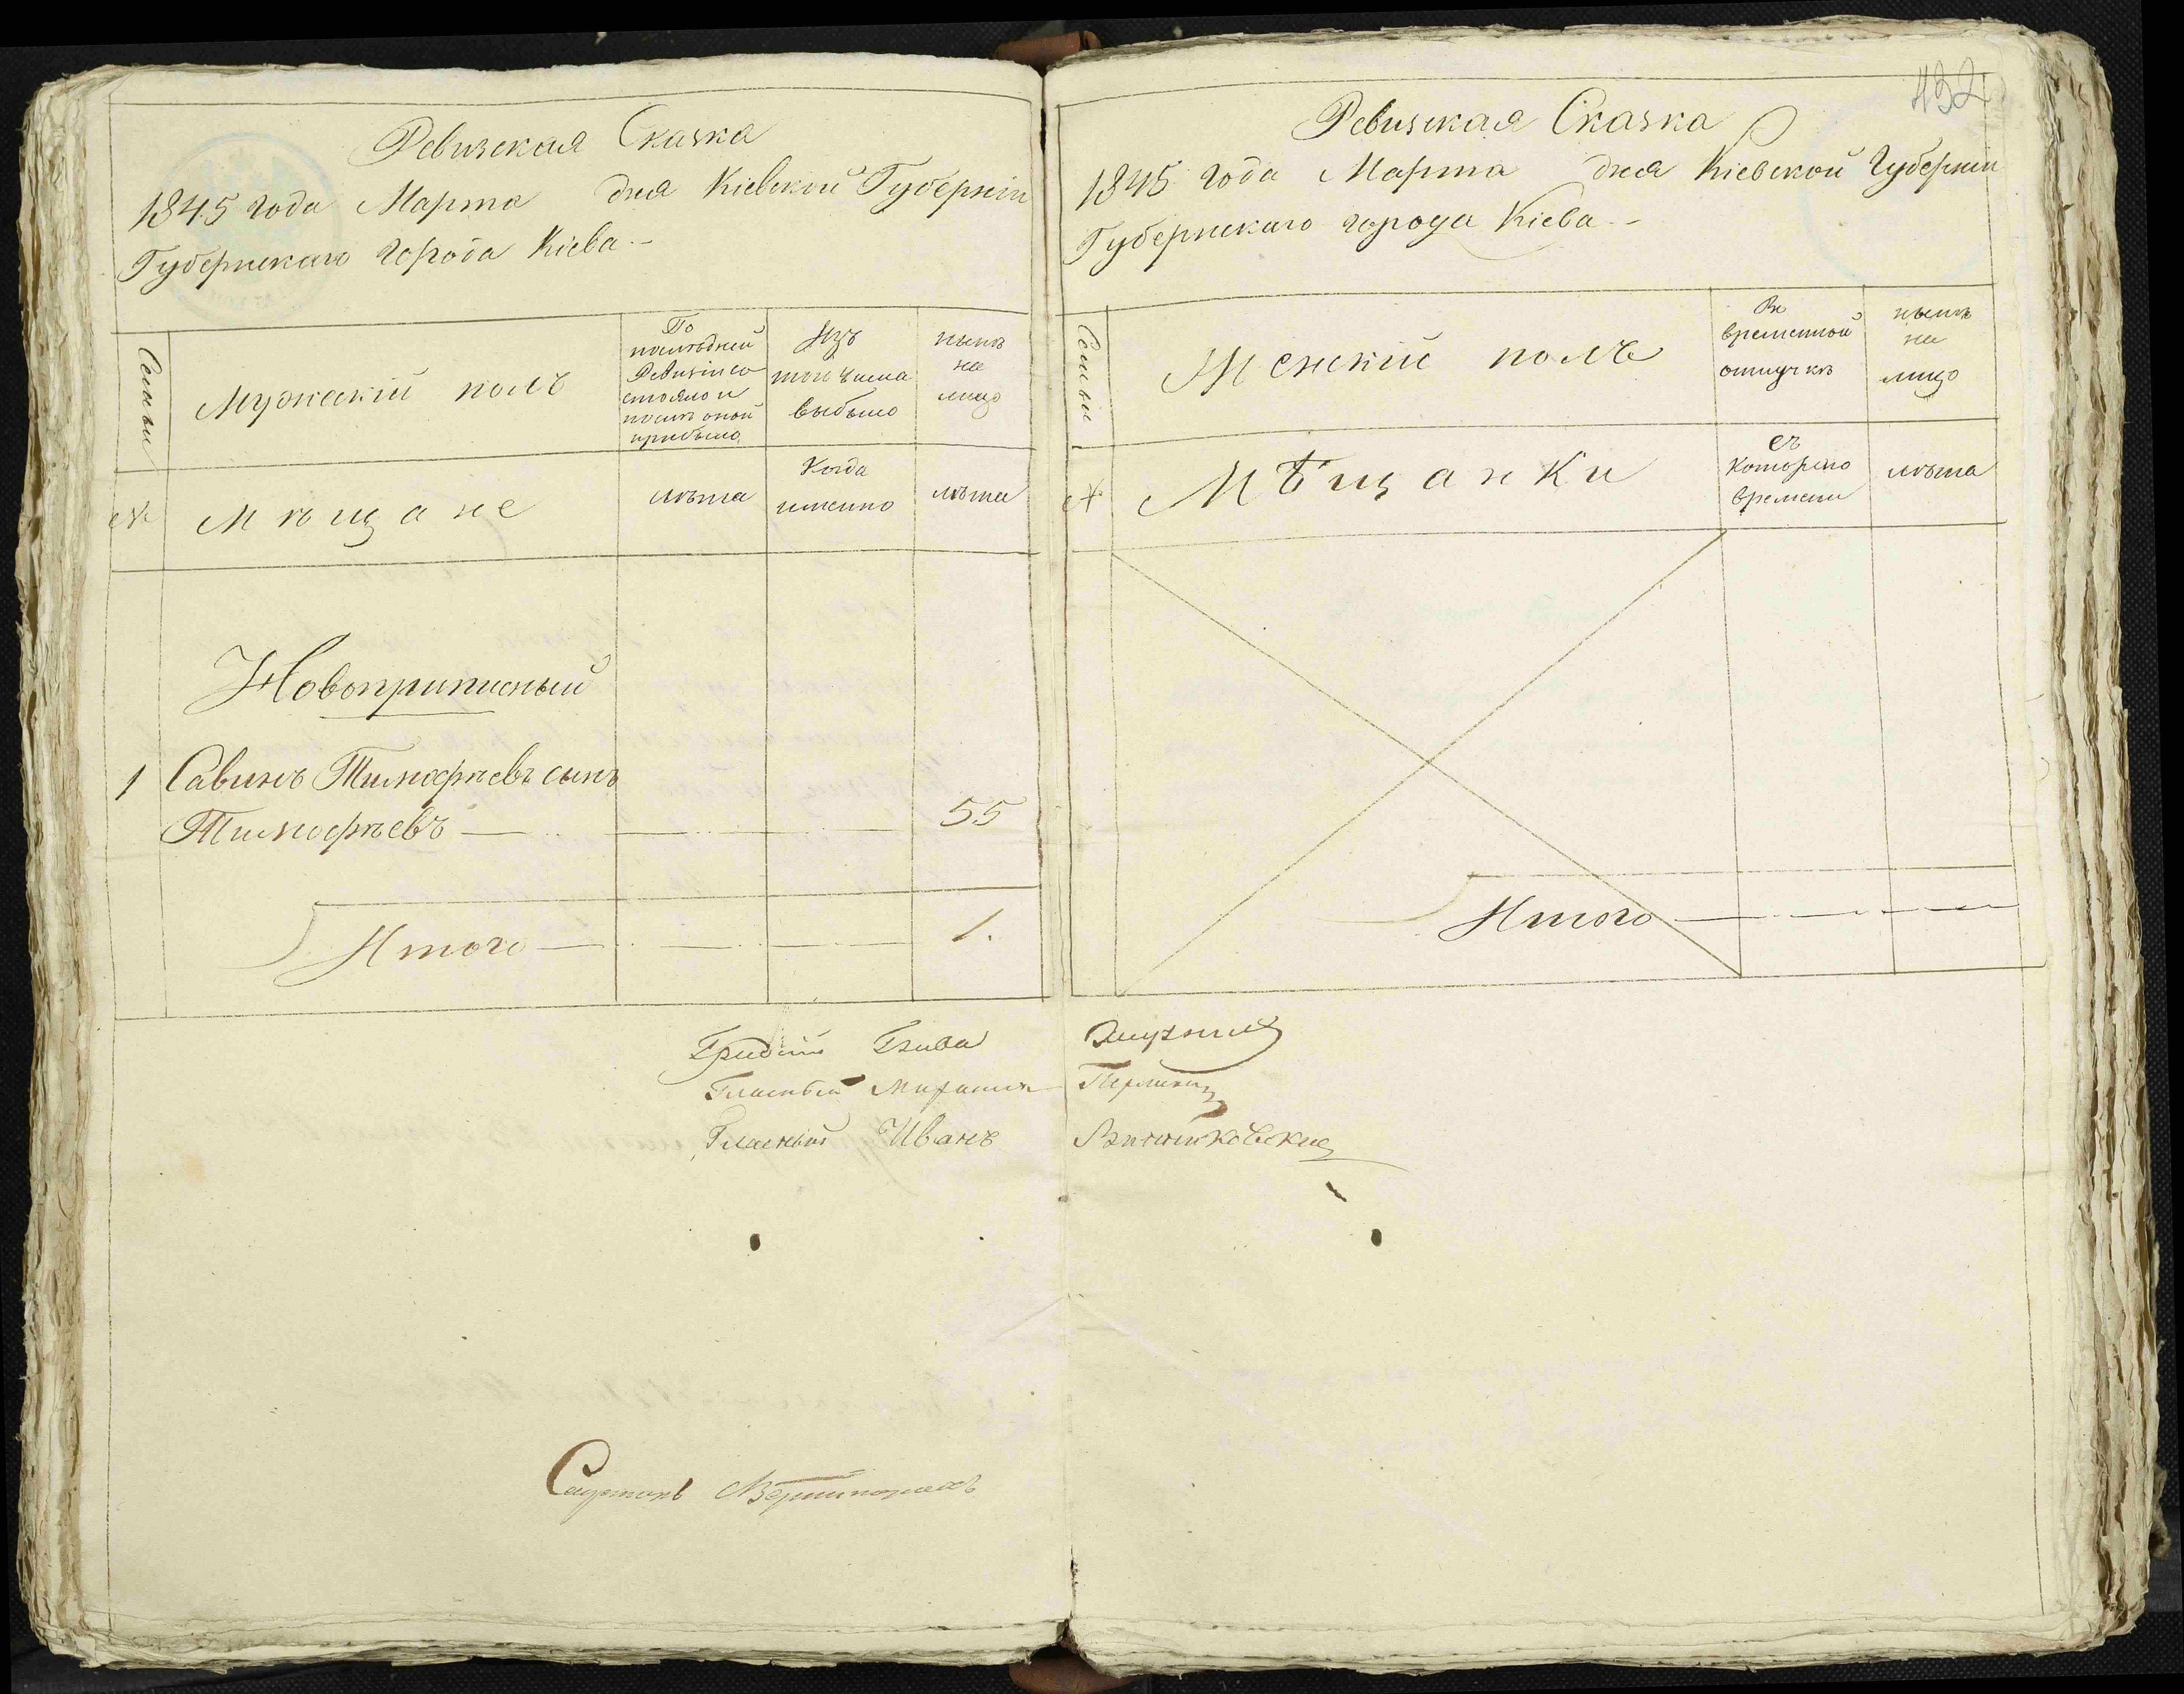 Ревизская Сказка
1845 года Марта дня Кіевской Губерніи
Губернскаго города Кіева
Семьи
Мужескій полъ
По
последней
Ревизіи со
стояло и
после оной
прибыло
Изъ
того числа
выбыло
ныне
на
лицо
№
Мѣщане
лѣта
Когда
именно
лѣта
Новоприписный
1 Савинъ Тимофѣевъ сынъ
Тимофѣевъ 55
Итого 1.
Гласный
Гласный Иванъ
432
Ревизская Сказка
1845 года Марта дня Кіевской Губерніи
Губернскаго города Кіева
Семьи
Женскій полъ
Во
временной
отлучкѣ
нынѣ
на
лицо
№
Мѣщанки
съ
котораго
времени
лѣта
Итого